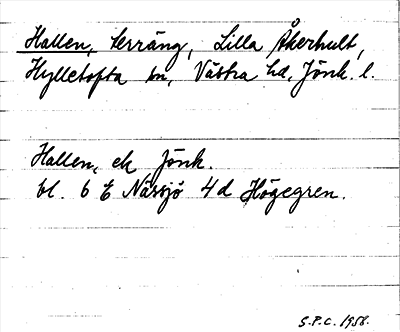 Hallen, terräng, Lilla Åkerhult,
Hylletofta sn, Västra hd, Jönk. l.
Hallen, ek Jönk.
bl. 6 E Nässjö 4d Högegren.
S.P.C. 1958.